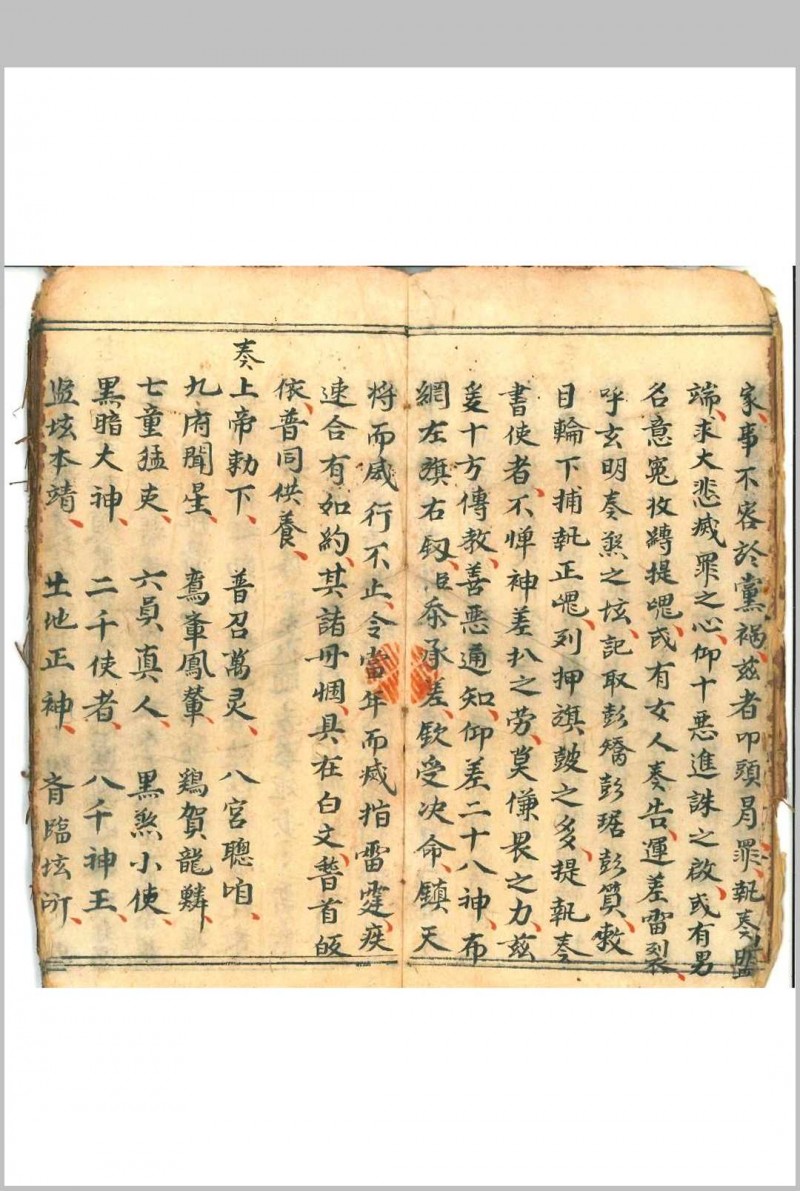 家事不容於黨禍、茲者叩頭𦙍罪、執奏盟
端、求大悲滅罪之心、仰十惡進誅之啟、或有男
名意冤攸縛提魂、或有女人奏告、運差雷裂、
呼玄明奏煞之垓、記取彭矯彭琚彭質、敕
目輪下捕執正魂、列押旗鼓之多、提執奏
書使者、不惮神差扒之劳、莫慊畏之力、茲
爰十方傳教、善惡通知、仰差二十八神、布
網左旗右釼、臣忝承差、欽受决命、鎮天
将而威行不止、令當年而滅指雷霆、疾
速合有如約、其諸丹悃、具在白文、諬首皈
依、普同供養、
奏上帝勅下、 普召萬灵、 八宮聰咱、
九府聞星、 鸞軬鳳輦、 鷄賀龍鱗、
七童猛吏、 六員真人、 黑煞小使
黑暗大神、 二千使者、 八千神王、
监垓本靖、 𡈽地正神、 斉臨垓所、